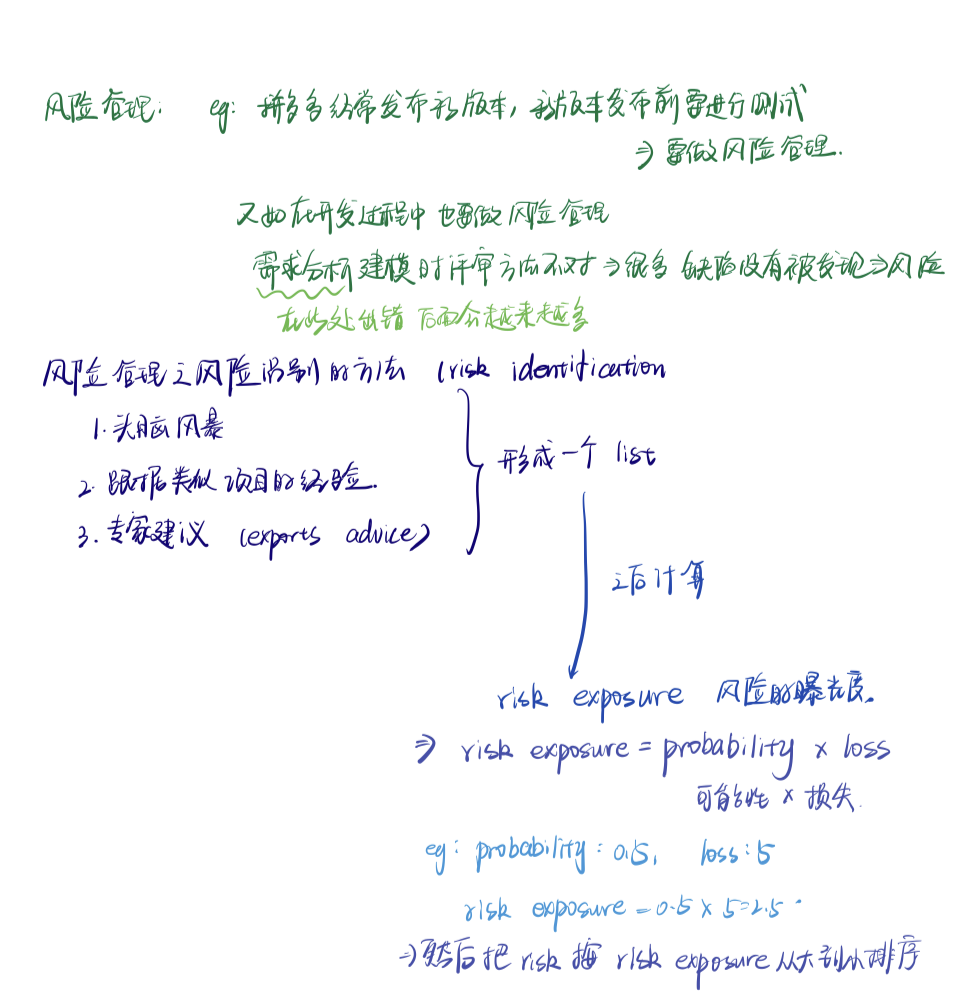 风险管理: eg: 拼多多经常发布新版本, 新版本发布前要进行测试
⇒ 要做风险管理.
又如在开发过程中也要做风险管理
需求分析建模时评审方法不对⇒很多缺陷没有被发现⇒风险
在此处出错 后面会越来越多
风险管理之风险识别的方法 (risk identification
1. 头脑风暴
形成一个 list
2. 跟据类似项目的经验.
3. 专家建议 (experts advice)
之后计算
risk exposure 风险的曝光度.
⇒ risk exposure = probability × loss
可能性 × 损失.
eg: probability: 0.5, loss: 5
risk exposure = 0.5 × 5 = 2.5.
⇒然后把 risk 按 risk exposure 从大到小排序